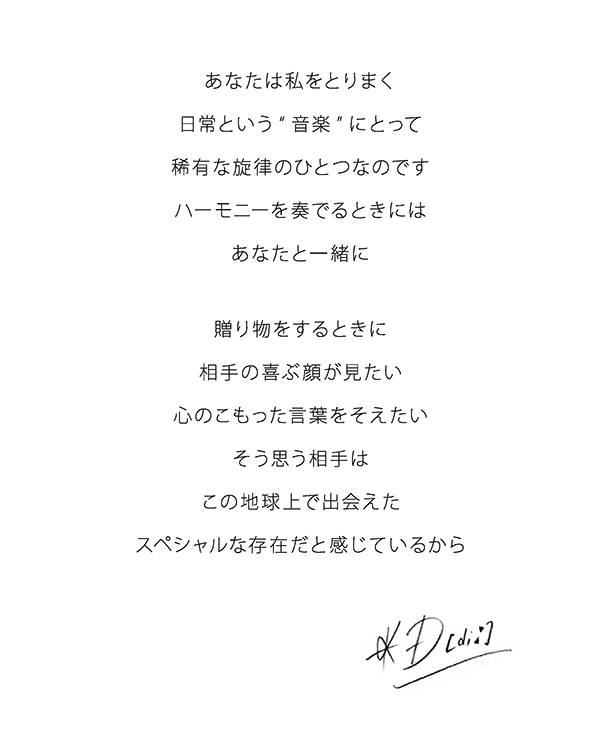 あなたは私をとりまく
日常という“音楽”にとって
稀有な旋律のひとつなのです
ハーモニーを奏でるときには
あなたと一緒に
贈り物をするときに
相手の喜ぶ顔が見たい
心のこもった言葉をそえたい
そう思う相手は
この地球上で出会えた
スペシャルな存在だと感じているから
D [di:]